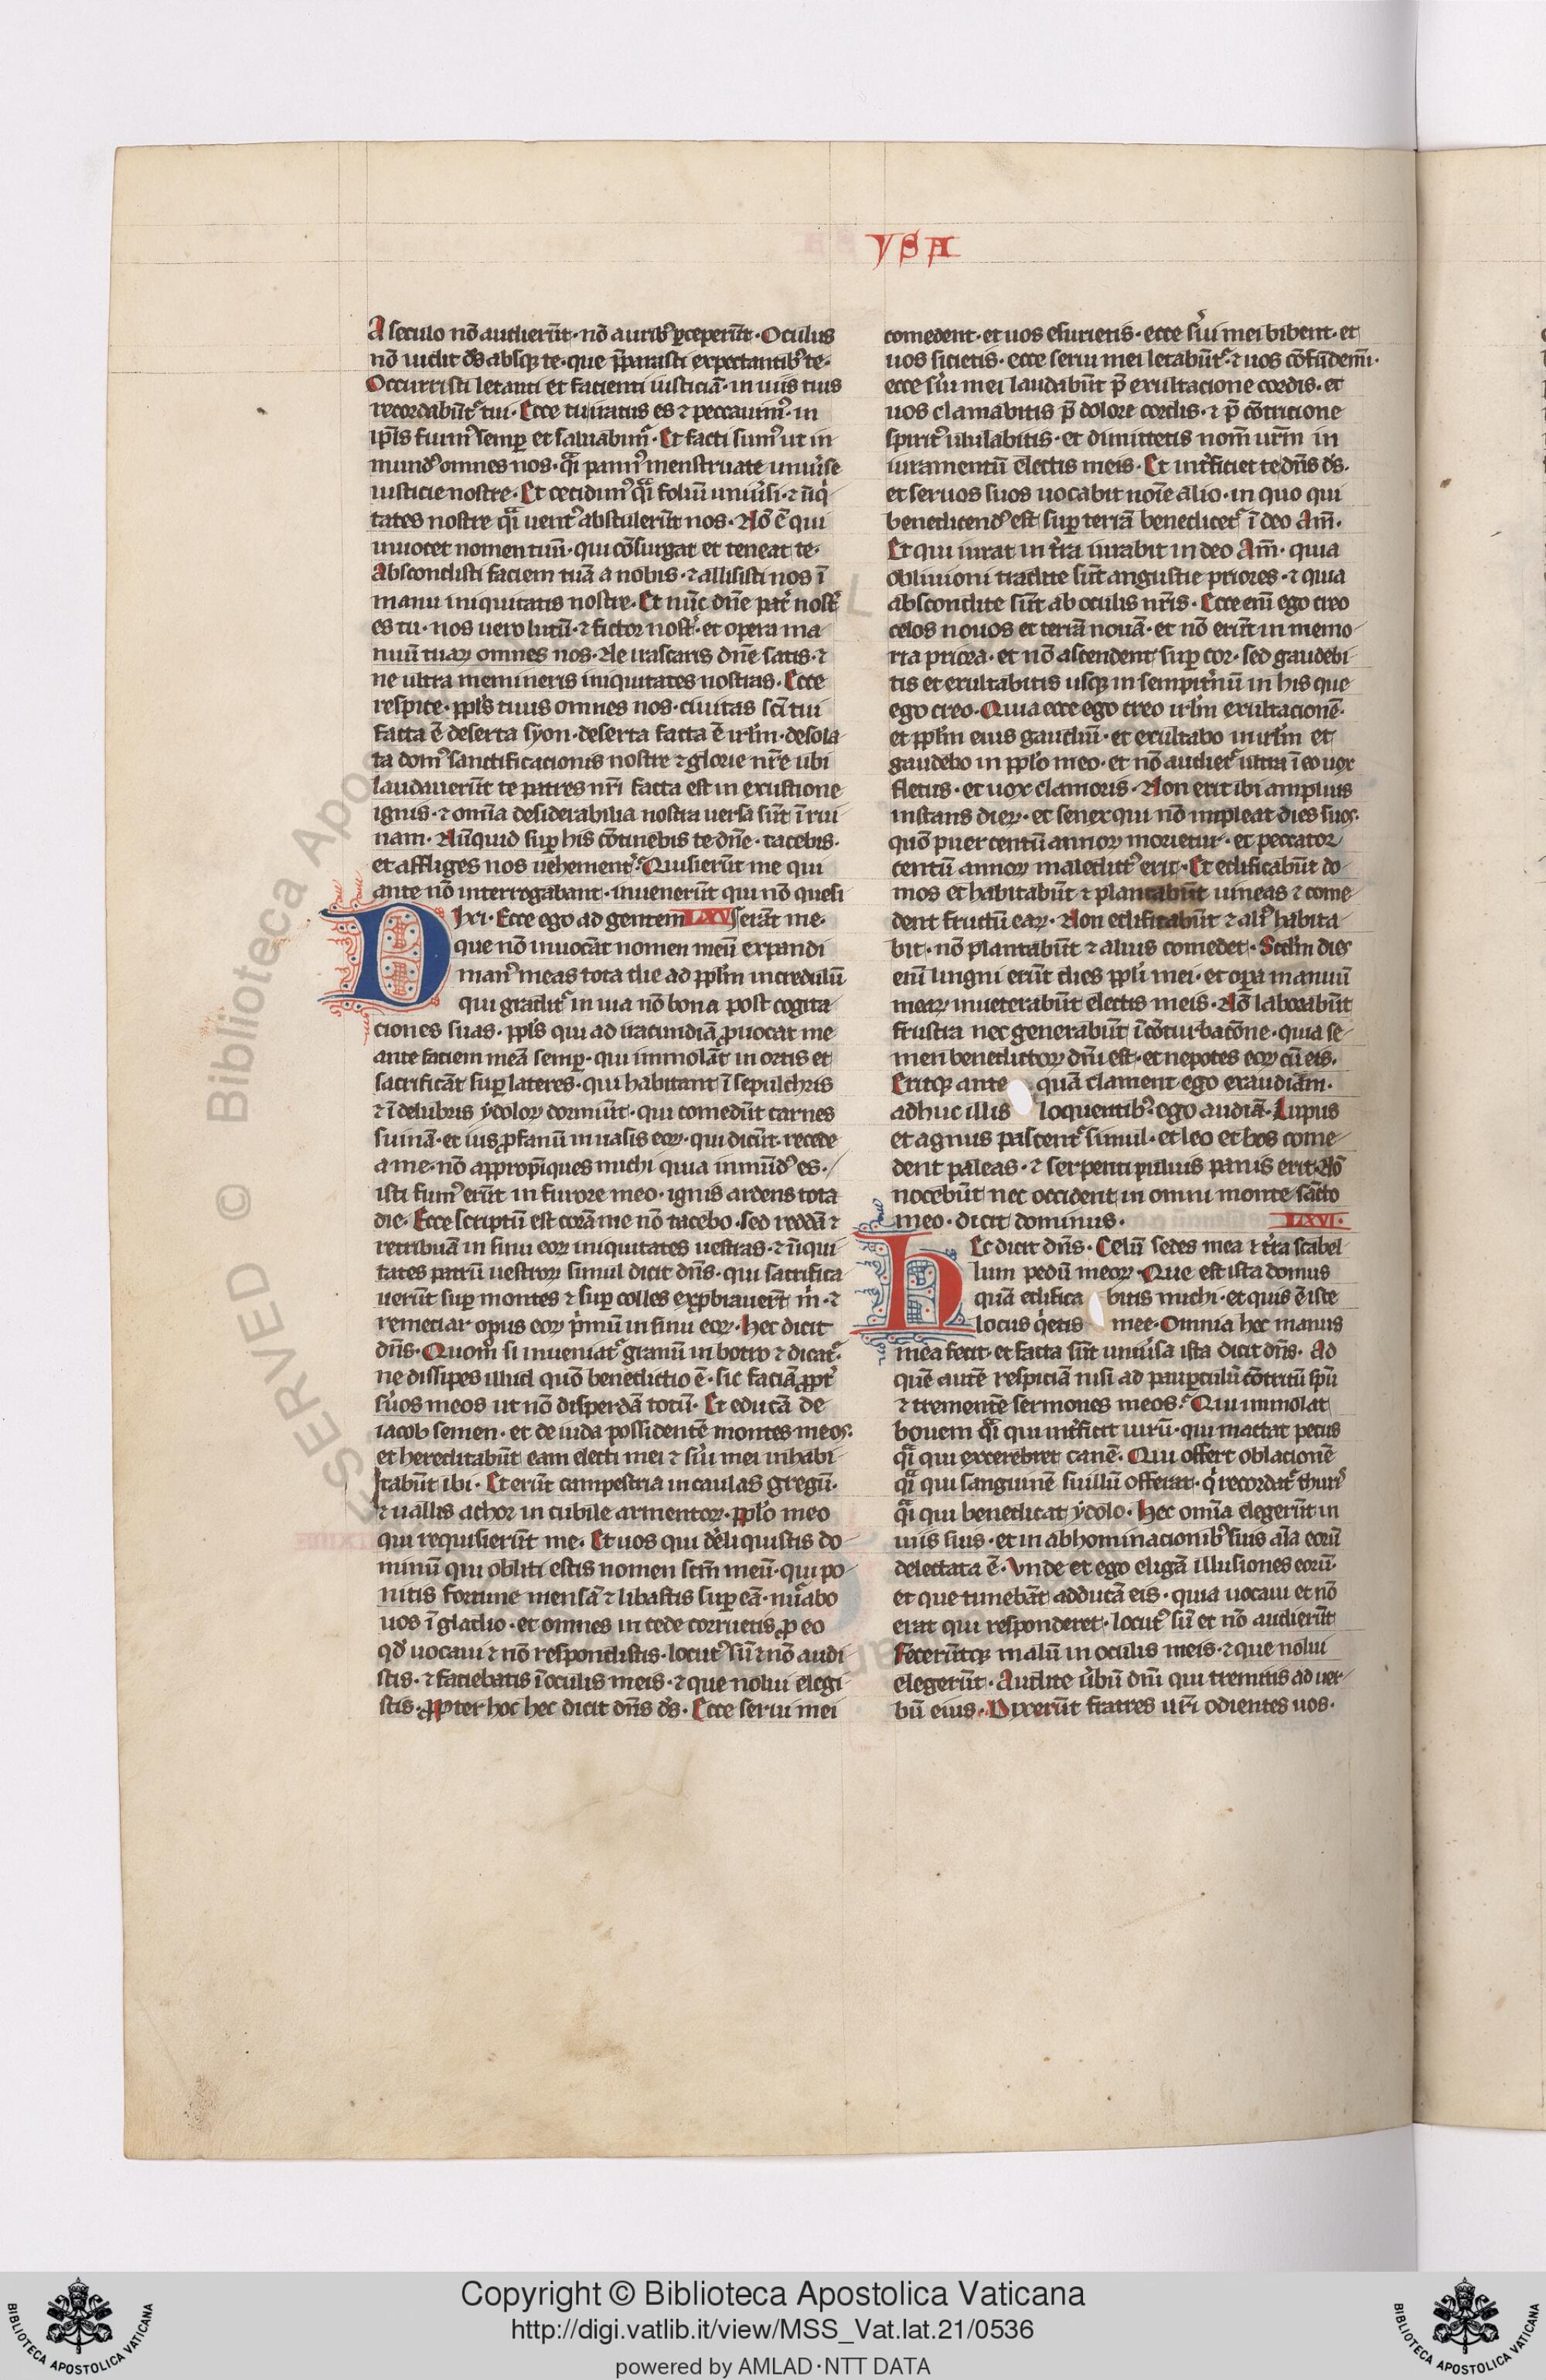 YSA
A seculo nō audierūt · nō aurib᷒ ꝑceperūt · Oculus
nō uidit ds̄ absqꝫ te · que p̄parasti expectantib᷒ te ·
Occurristi letanti et facienti iusticiā · in uiis tuis
recordabūt᷑ tui · Ecce tu iratus es ⁊ peccauim᷒ · in
ip̄is fuim᷒ semꝑ et saluabim᷑ · Et facti sum᷒ ut in
mund᷒ omnes nos · qͣi pann᷒ menstruate uniu̾se
iusticie nostre · Et cecidim᷒ qͣi folium uniu̾si · ⁊ iīqͥ
tates nostre qͣi uent᷒ abstulerūt nos · Nō ē qui
inuocet nomen tuū · qui cōsurgat et teneat te ·
Abscondisti faciem tuā a nobis · ⁊ allisisti nos ī
manu iniquitatis nostre · Et nūc dn̄e pat̾ nost̾
es tu · nos uero lutū · ⁊ fictor nost̾ · et opera ma
nuū tuaꝝ omnes nos · Ne irascaris dn̄e satis · ⁊
ne ultra memineris iniquitates nostras · Ecce
respice · ppl̄s tuus omnes nos · ciuitas sc̄i tui
facta ē deserta syon · deserta facta ē irl̄m · desola
ta dom᷒ sanctificacionis nostre ⁊ glorie nr̄e ubi
laudauerūt te patres nr̄i facta est in exustione
ignis · ⁊ omīa desiderabilia nostra uersa sūt ī rui
nam · Nūquid suꝑ his cōtinebis te dn̄e · tacebis ·
et affliges nos uehement᷑ · Quisierūt me qui
ante nō interrogabant · inuenerūt qui nō quesi
Dixi · Ecce ego ad gentem LXV serāt me ·
que nō inuocāt nomen meū expandi
man᷒ meas tota die ad ppl̄m incredulū
qui gradit᷑ in uia nō bona post cogita
ciones suas · ppl̄s qui ad iracundiā ꝓuocat me
ante faciem meā semꝑ · qui immolāt in ortis et
sacrificāt suꝑ lateres · qui habitant ī sepulchris
⁊ ī delubris ydoloꝝ dormiūt · qui comedūt carnes
suinā · et ius ꝓfanū in uasis eoꝝ · qui dicūt · recede
a me · nō appropīques michi quia inmūd᷒ es ·
isti fum᷒ erūt in furore meo · ignis ardens tota
die · Ecce scriptū est corā me nō tacebo · sed reddā ⁊
retribuā in sinu eoꝝ iniquitates uestras · ⁊ iīqui
tates patrū uestroꝝ simul dicit dn̄s · qui sacrifica
uerūt suꝑ montes ⁊ suꝑ colles exꝓbrauerūt m̄ · ⁊
remeciar opus eoꝝ pͥmū in sinu eoꝝ · Hec dicit
dn̄s · Quom̊ si inueniat᷑ granū in botro ⁊ dicat᷑ ·
ne dissipes illud quō benedictio ē · sic faciā ꝓpt̾
s̾uos meos ut nō disperdā totū · Et educā de
iacob semen · et de iuda possidentē montes meos ·
et hereditabūt eam electi mei ⁊ s̾ui mei inhabi
tabūt ibi · Et erūt campestria in caulas gregū ·
⁊ uallis achor in cubile armentoꝝ · ppl̄o meo
qui requisierūt me · Et uos qui dereliquistis do
minū qui obliti estis nomen scm̄ meū · qui po
nitis fortune mensā ⁊ libastis suꝑ eā · nūabo
uos ī gladio · et omnes in cede corruetis ꝓ eo
qd̾ uocaui ⁊ nō respondistis · locut᷒ sū ⁊ nō audi
stis · ⁊ faciebatis ī oculis meis · ⁊ que nolui elegi
stis · ꝓpter hoc hec dicit dn̄s ds̄ · Ecce serui mei
comedent · et uos esurietis · ecce s̾ui mei bibent · et
uos sicietis · ecce serui mei letabūt᷑ · ⁊ uos cōfūdem̄i ·
ecce s̾ui mei laudabūt p̄ exultacione cordis · et
uos clamabitis p̄ dolore cordis · ⁊ p̄ cōtricione
spirit᷒ ululabitis · et dimittetis nom̄ ur̄m in
iuramentū electis meis · Et int̾ficiet te dn̄s ds̄ ·
et seruos suos uocabit noīe alio · in quo qui
benedicend᷒ est suꝑ terrā benedicet᷑ ī deo Am̄ ·
Et qui iurat in t̾ra iurabit in deo Am̄ · quia
obliuioni tradite sūt angustie priores · ⁊ quia
abscondite sūt ab oculis nr̄is · Ecce eni̅ ego creo
celos nouos et terrā nouā · et nō erūt in memo
ria priora · et nō ascendent suꝑ cor · sed gaudebi
tis et exultabitis usqꝫ in sempit̾nū in his que
ego creo · Quia ecce ego creo irl̄m exultacionē ·
et ppl̄m eius gaudiū · et exultabo in irl̄m et
gaudebo in ppl̄o meo · et nō audiet᷑ ultra ī eo uox
fletus · et uox clamoris · Non erit ibi amplius
instans dieꝝ · et senex qui nō impleat dies suos ·
quō puer centū annoꝝ morietur · et peccator
centū annoꝝ maledict᷒ erit · Et edificabūt do
mos et habitabūt ⁊ plantabūt uineas ⁊ come
dent fructū eaꝝ · Non edificabūt ⁊ ali᷒ habita
bit · nō plantabūt ⁊ alius comedet · Scdm̄ dies
eni̅ lingni erūt dies ppl̄i mei · et oꝑa manuū
meaꝝ inueterabūt electis meis · Nō laborabūt
frustra nec generabūt ī cōturbacōne · quia se
men benedictoꝝ dn̄i est · et nepotes eoꝝ cū eis ·
Eritqꝫ ante quā clament ego exaudiam ·
adhuc illis loquentib᷒ · ego audiā · Lupus
et agnus pascent᷑ simul · et leo et bos come
dent paleas · ⁊ serpenti puluis panis erit · Nō
nocebūt nec occident in omni monte sācto
meo · dicit dominus · LXVI ·
Hec dicit dn̄s · Celū sedes mea ⁊ t̾ra scabel
lum pedū meoꝝ · Que est ista domus
quā edifica bitis michi · et quis ē iste
locus qͥetis mee · Omnia hec manus
mea fecit · et facta sūt uniu̾sa ista dicit dn̄s · Ad
quē autē respiciā nisi ad pauꝑculū cōtritū spū
⁊ trementē sermones meos · Qui immolat
bouem qͣi qui int̾ficit uirū · qui mactat pecus
qͣi qui excerebret canē · Qui offert oblacionē
qͣi qui sanguinē suillū offerat · qͥ recordat᷑ thur̾
qͣi qui benedicat ydolo · Hec omīa elegerūt in
uiis suis · et in abhominacionib᷒ suis aīa eorū
delectata ē · Vnde et ego eligā illusiones eorū ·
et que timebāt adducā eis · quia uocaui et nō
erat qui responderet · locut᷒ sū et nō audierūt
Fecerūtqꝫ malū in oculis meis · ⁊ que nolui
elegerūt · Audite u̾bū dn̄i qui tremitis ad uer
bū eius · Dixerūt fratres ur̄i odientes uos ·
© Biblioteca Apostolica Vaticana
Copyright © Biblioteca Apostolica Vaticana
http://digi.vatlib.it/view/MSS_Vat.lat.21/0536
powered by AMLAD · NTT DATA
BIBLIOTECA APOSTOLICA VATICANA
BIBLIOTECA APOSTOLICA VATICANA